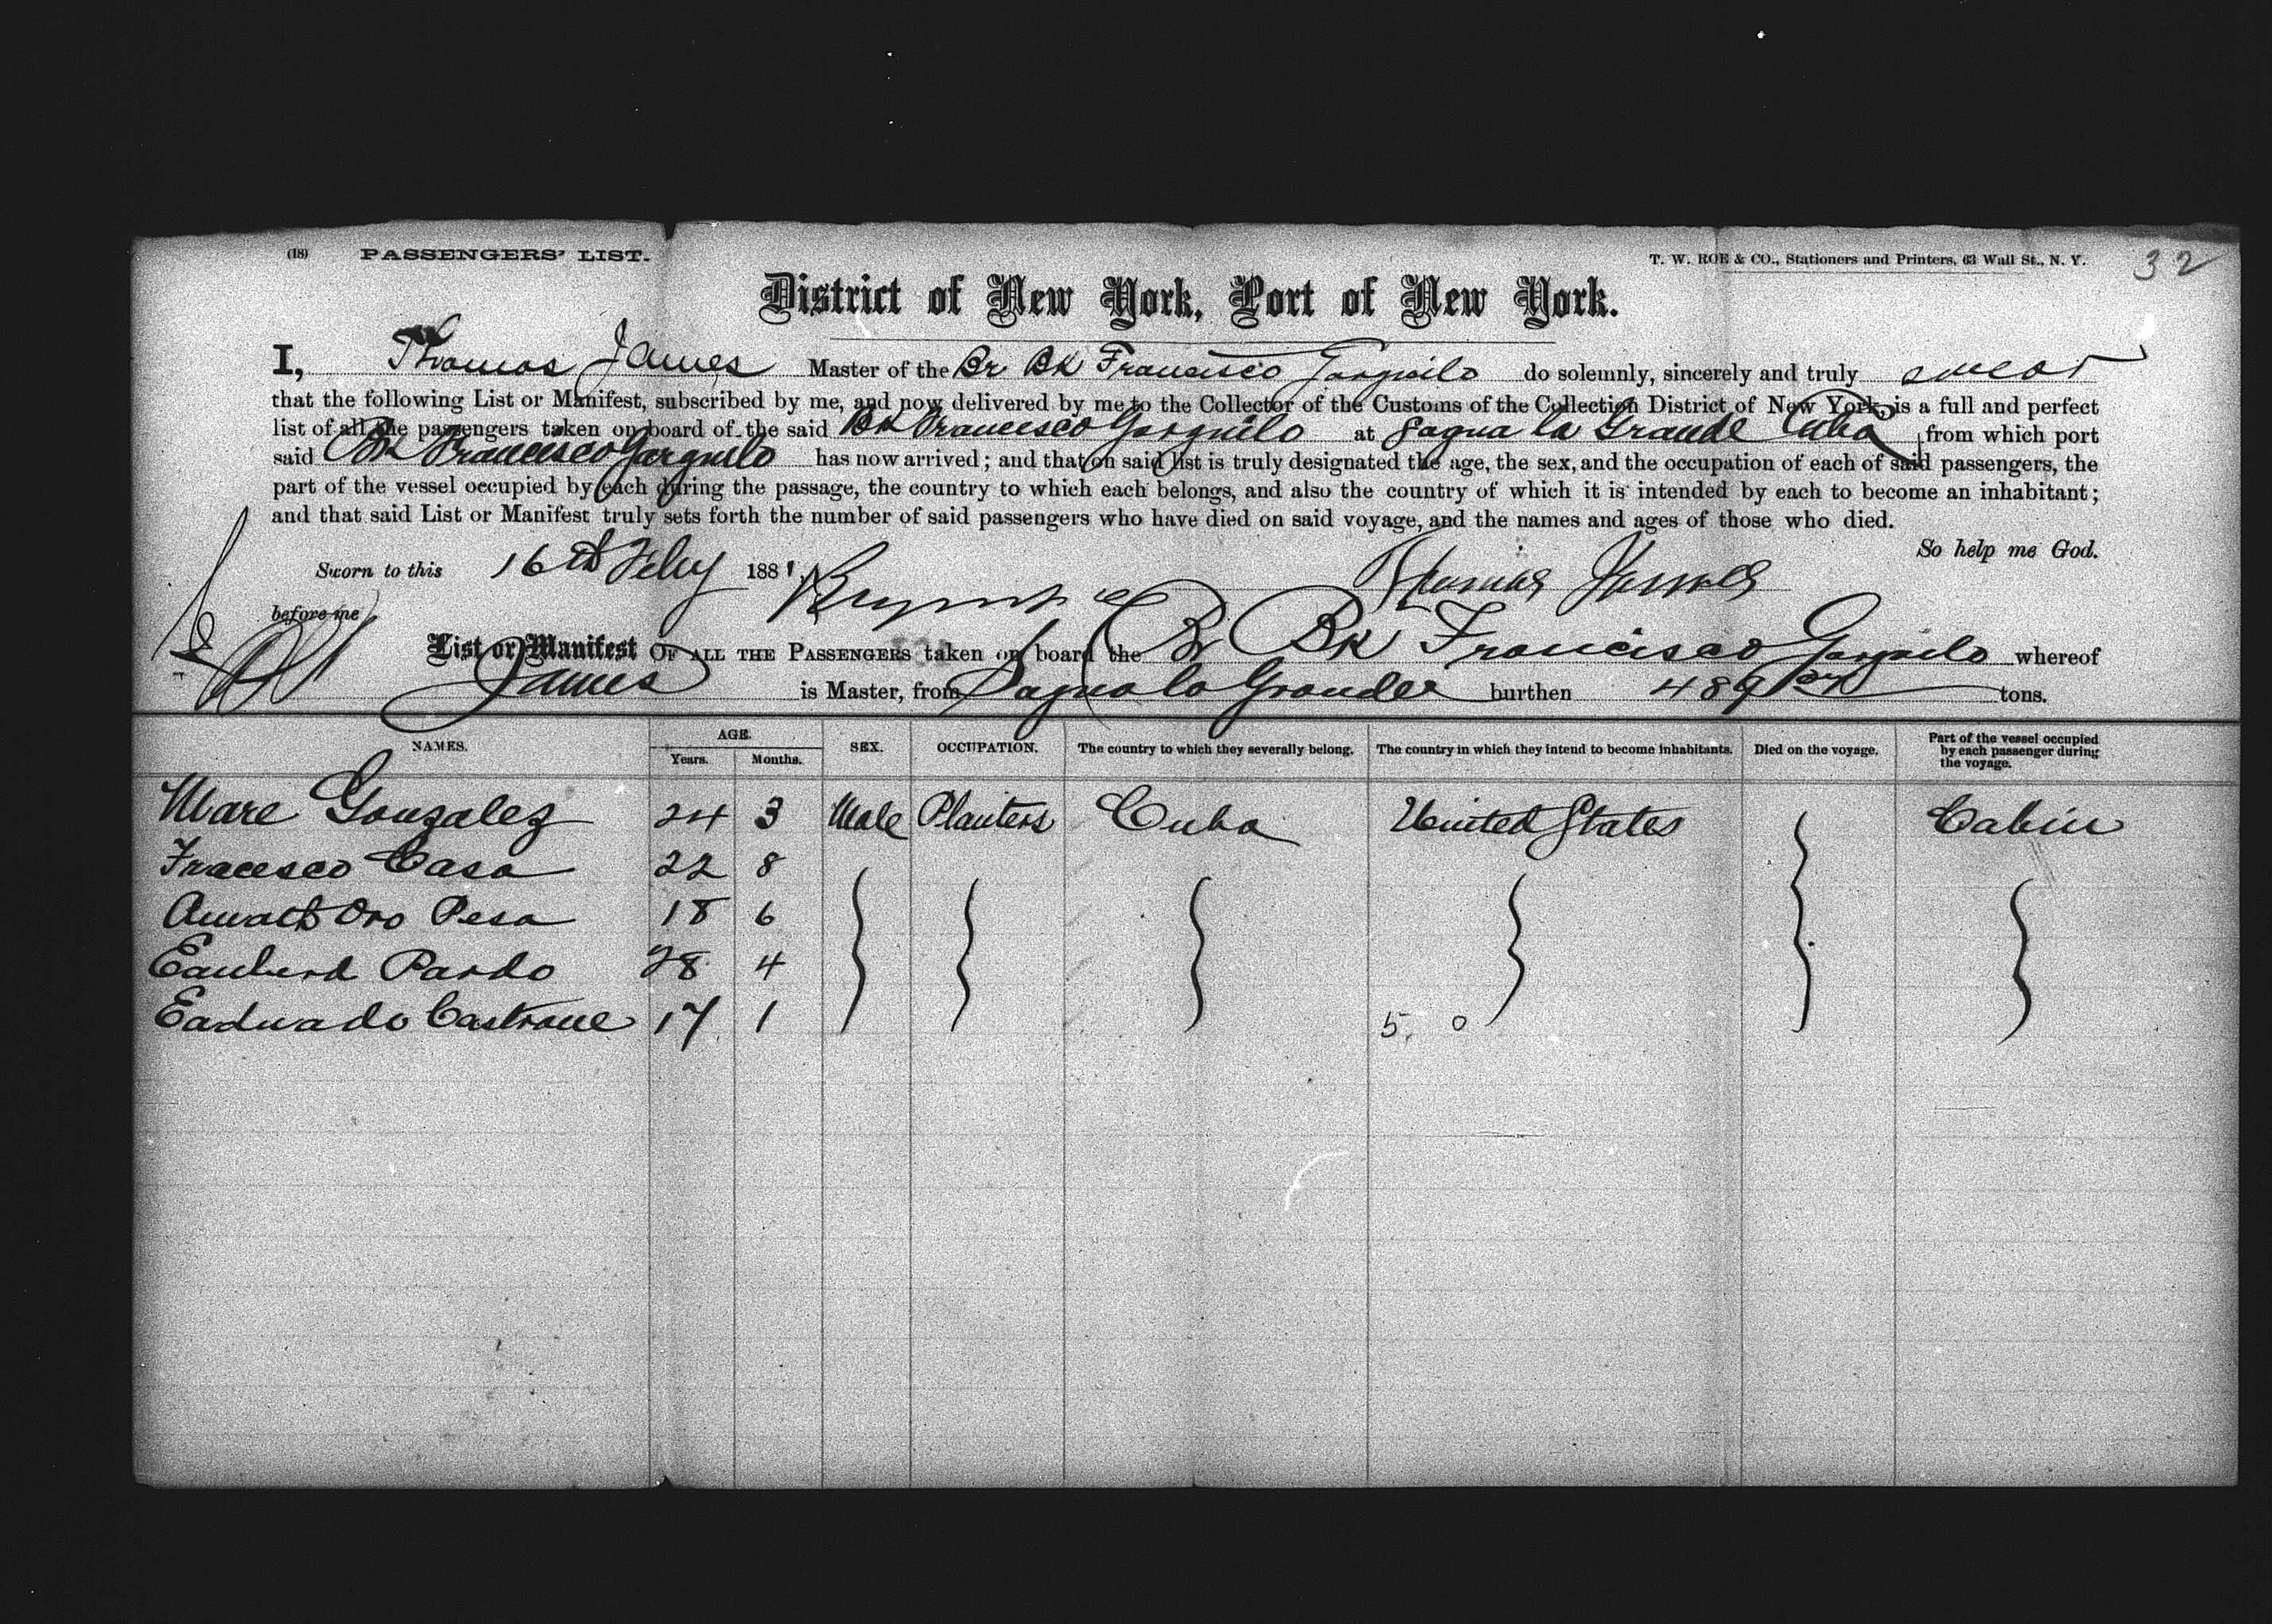 (18) PASSENGERS' LIST. T. W. ROE & CO., Stationers and Printers, 63 Wall St., N. Y. 32
District of New York, Port of New York.
I, Thomas James Master of the Br Bk Francisco Garguilo do solemnly, sincerely and truly swear
that the following List or Manifest, subscribed by me, and now delivered by me to the Collector of the Customs of the Collection District of New York, is a full and perfect
list of all the passengers taken on board of the said Bk Francisco Garguilo at Sagua la Grande Cuba from which port
said Bk Francisco Garguilo has now arrived; and that on said list is truly designated the age, the sex, and the occupation of each of said passengers, the
part of the vessel occupied by each during the passage, the country to which each belongs, and also the country of which it is intended by each to become an inhabitant;
and that said List or Manifest truly sets forth the number of said passengers who have died on said voyage, and the names and ages of those who died.
So help me God.
Sworn to this 16th Feby 1881. Thomas James
before me
List or Manifest OF ALL THE PASSENGERS taken on board the Br Bk Francisco Garguilo whereof
James is Master, from Sagua la Grande burthen 489 tons.
NAMES. AGE. Years. Months. SEX. OCCUPATION. The country to which they severally belong. The country in which they intend to become inhabitants. Died on the voyage. Part of the vessel occupied by each passenger during the voyage.
Mare Gonzalez 24 3 Male Planters Cuba United States Cabin
Fracesco Casa 22 8
Oro Pesa 18 6
Pardo 28 4
Eaduado Castrone 17 1
5. 0